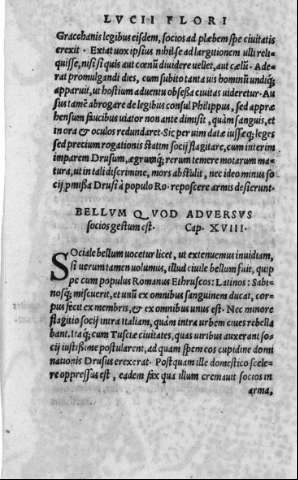 LVCII FLORI
Gracchanis legibus eisdem, socios ad plæbem spe ciuitatis
erexit. Extat uox ipsius nihil se ad largitionem ulli reli-
quisse, nisi si quis aut cœnũ diuidere uellet, aut cælũ. Ade-
rat promulgandi dies, cum subito tanta uis hominũ undiq;
apparuit, ut hostium aduentu obsessa ciuitas uideretur. Au
sus tamẽ abrogare de legibus consul Philippus, sed appræ
hensum faucibus uiator non ante dimisit, quàm sanguis, et
in ora & oculos redundaret. Sic per uim datæ iussæq; leges
sed precium rogationis statim socij flagitare, cum interim
imparem Drusum, ægrumq; rerum temere motarum ma=
tura, ut in tali discrimine, mors abstulit, nec ideo minus so
cij promissa Drusi à populo Ro. reposcere armis desierunt.
BELLVM QVOD ADVERSVS
socios gestum est. Cap. XVIII.
SOciale bellum uocetur licet, ut extenuemus inuidiam,
si uerum tamen uolumus, illud ciuile bellum fuit, quip
pe cum populus Romanus Ethruscos: Latinos: Sabi-
nosq; miscuerit, et unũ ex omnibus sanguinem ducat, cor=
pus fecit ex membris, & ex omnibus unus est. Nec minore
flagitio socij intra Italiam, quàm intra urbem ciues rebella
bant. Itaq; cum Tusciæ ciuitates, quas uiribus auxerant so=
cij iustissime postularent, ad quam spem eos cupidine domi
nationis Drusus erexerat. Postquam ille domestico scele-
re oppressus est, eadem fax quæ illum cremauit socios in
arma,